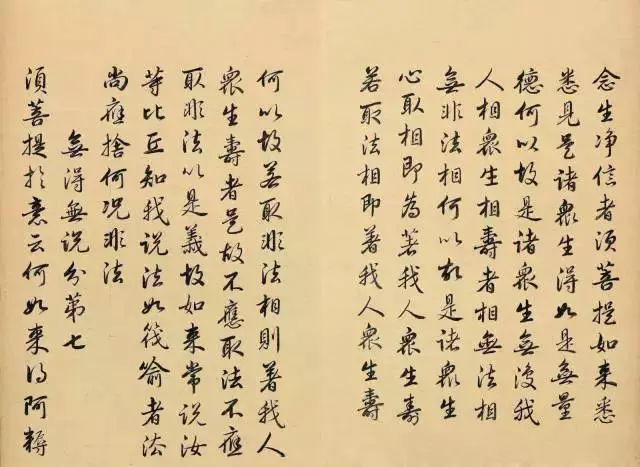 念生净信者須菩提如来悉
悉見是諸衆生得如是無量
德何以故是諸衆生無復我
人相衆生相壽者相無法相
無非法相何以故是諸衆生
心取相即為著我人衆生壽
若取法相即著我人衆生壽
何以故若取非法相則著我人
衆生壽者是故不應取法不應
取非法以是義故如来常説汝
等比丘知我説法如筏喻者法
尚應捨何况非法
無得無説分第七
須菩提於意云何如来得阿耨